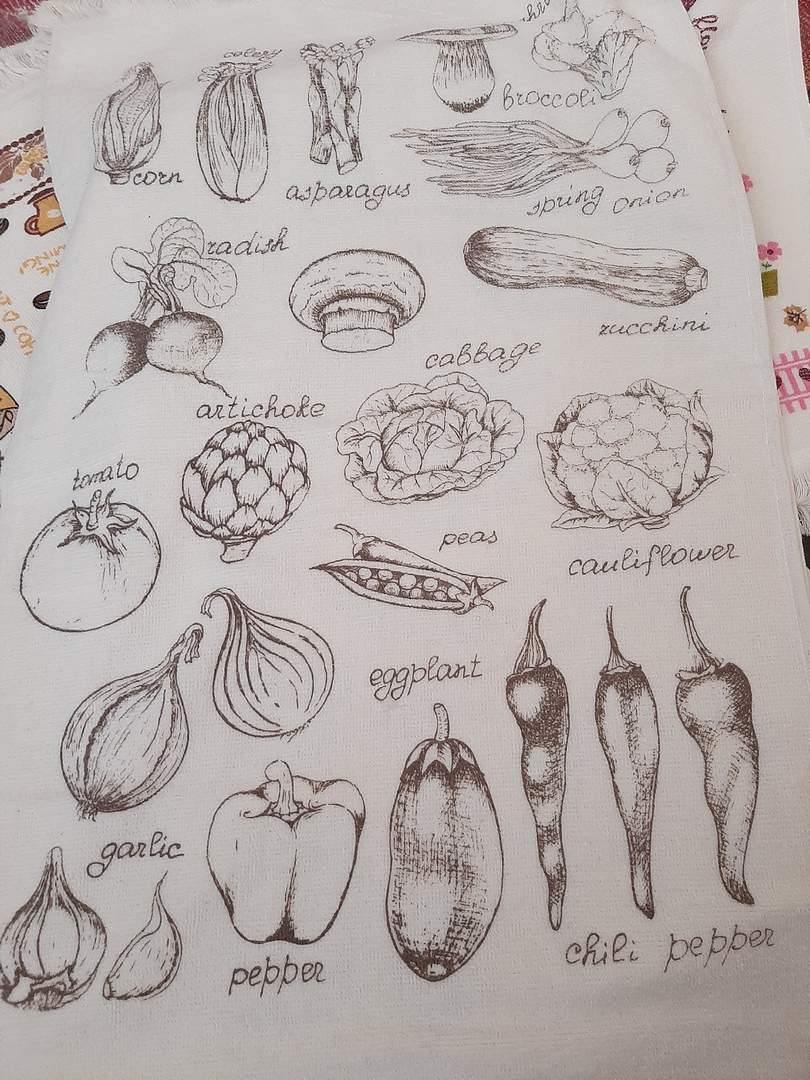 celery
broccoli
corn
asparagus
spring onion
radish
zucchini
cabbage
artichoke
tomato
peas
cauliflower
eggplant
garlic
pepper
chili pepper